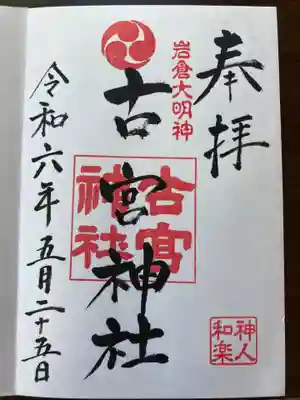 奉拝
岩倉大明神
古宮神社
古宮神社
神人和楽
令和六年五月二十五日